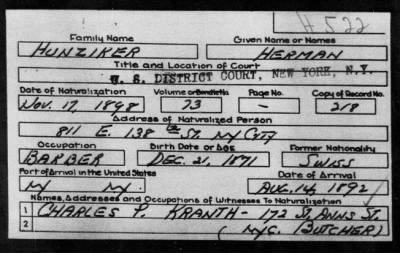 H 522
Family Name Given Name or Names
HUNZIKER HERMAN
Title and Location of Court
U. S. DISTRICT COURT, NEW YORK, N.Y.
Date of Naturalization Volume or Bundle No. Page No. Copy of Record No.
NOV. 17, 1898 73 — 218
Address of Naturalized Person
811 E. 138 th ST. NY CITY
Occupation Birth Date or Age Former Nationality
BARBER DEC. 21, 1871 SWISS
Port of Arrival in the United States Date of Arrival
NY NY. AUG. 14, 1892
Names, Addresses and Occupations of Witnesses To Naturalization
1 CHARLES P. KRANTH - 172 St. ANNS ST.
2 (NYC. BUTCHER)